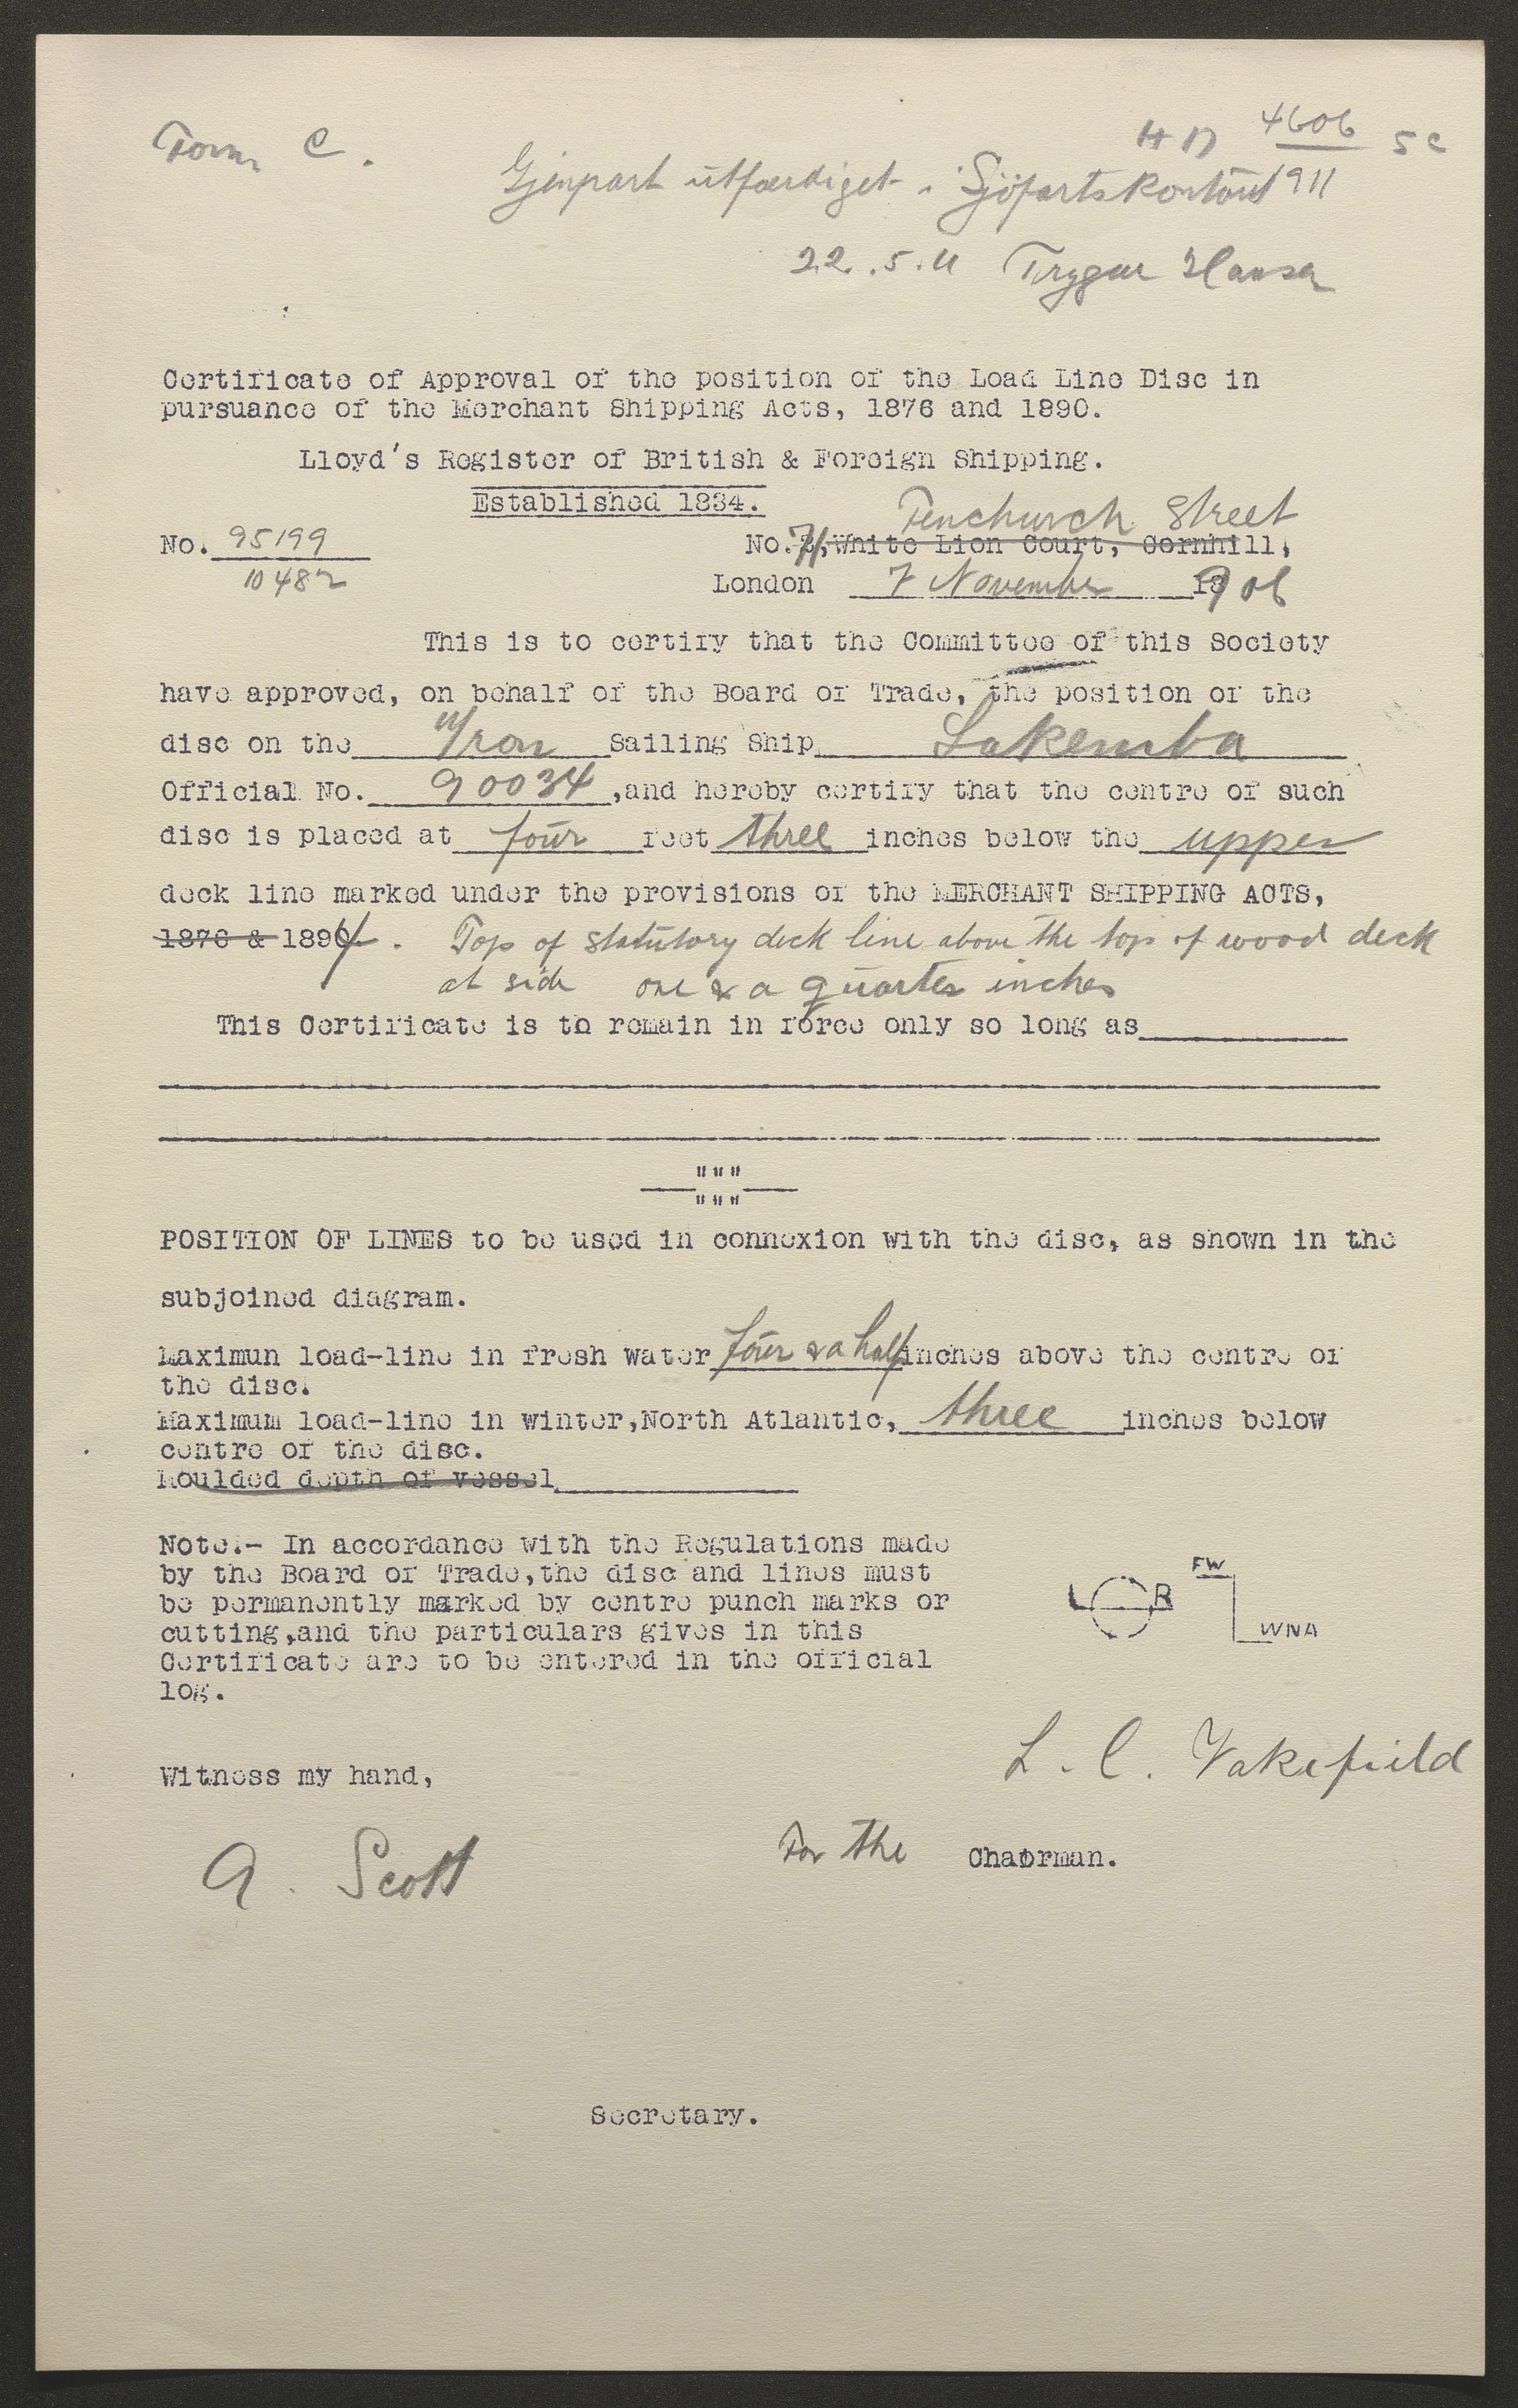 Form C.
HD 4606 5c
Gjenpart utfærdiget i Sjöfartskontoret 1911
22.5.11 Trygve Hansen
Certificate of Approval of the position of the Load Line Disc in
pursuance of the Merchant Shipping Acts, 1876 and 1890.
Lloyd's Register of British & Foreign Shipping.
Established 1834.
Fenchurch Street
No. 95199
No. 71, White Lion Court, Cornhill,
10482
London 7 November 1906
This is to certify that the Committee of this Society
have approved, on behalf of the Board of Trade, the position of the
disc on the Iron Sailing Ship Lakemba
Official No. 90034 ,and hereby certify that the centre of such
disc is placed at four feet three inches below the upper
deck line marked under the provisions of the MERCHANT SHIPPING ACTS,
1876 & 1894. Top of statutory deck line above the top of wood deck
at side one & a quarter inches
This Certificate is to remain in force only so long as
POSITION OF LINES to be used in connexion with the disc, as shown in the
subjoined diagram.
Maximun load-line in fresh water four & a half inches above the centre of
the disc.
Maximum load-line in winter,North Atlantic, three inches below
centre of the disc.
Moulded depth of vessel
Note.- In accordance with the Regulations made
by the Board of Trade,the disc and lines must
be permanently marked by centre punch marks or
cutting,and the particulars gives in this
Certificate are to be entered in the official
log.
FW
L R
WNA
L. C. Wakefield
Witness my hand,
For the Chairman.
A. Scott
Secretary.